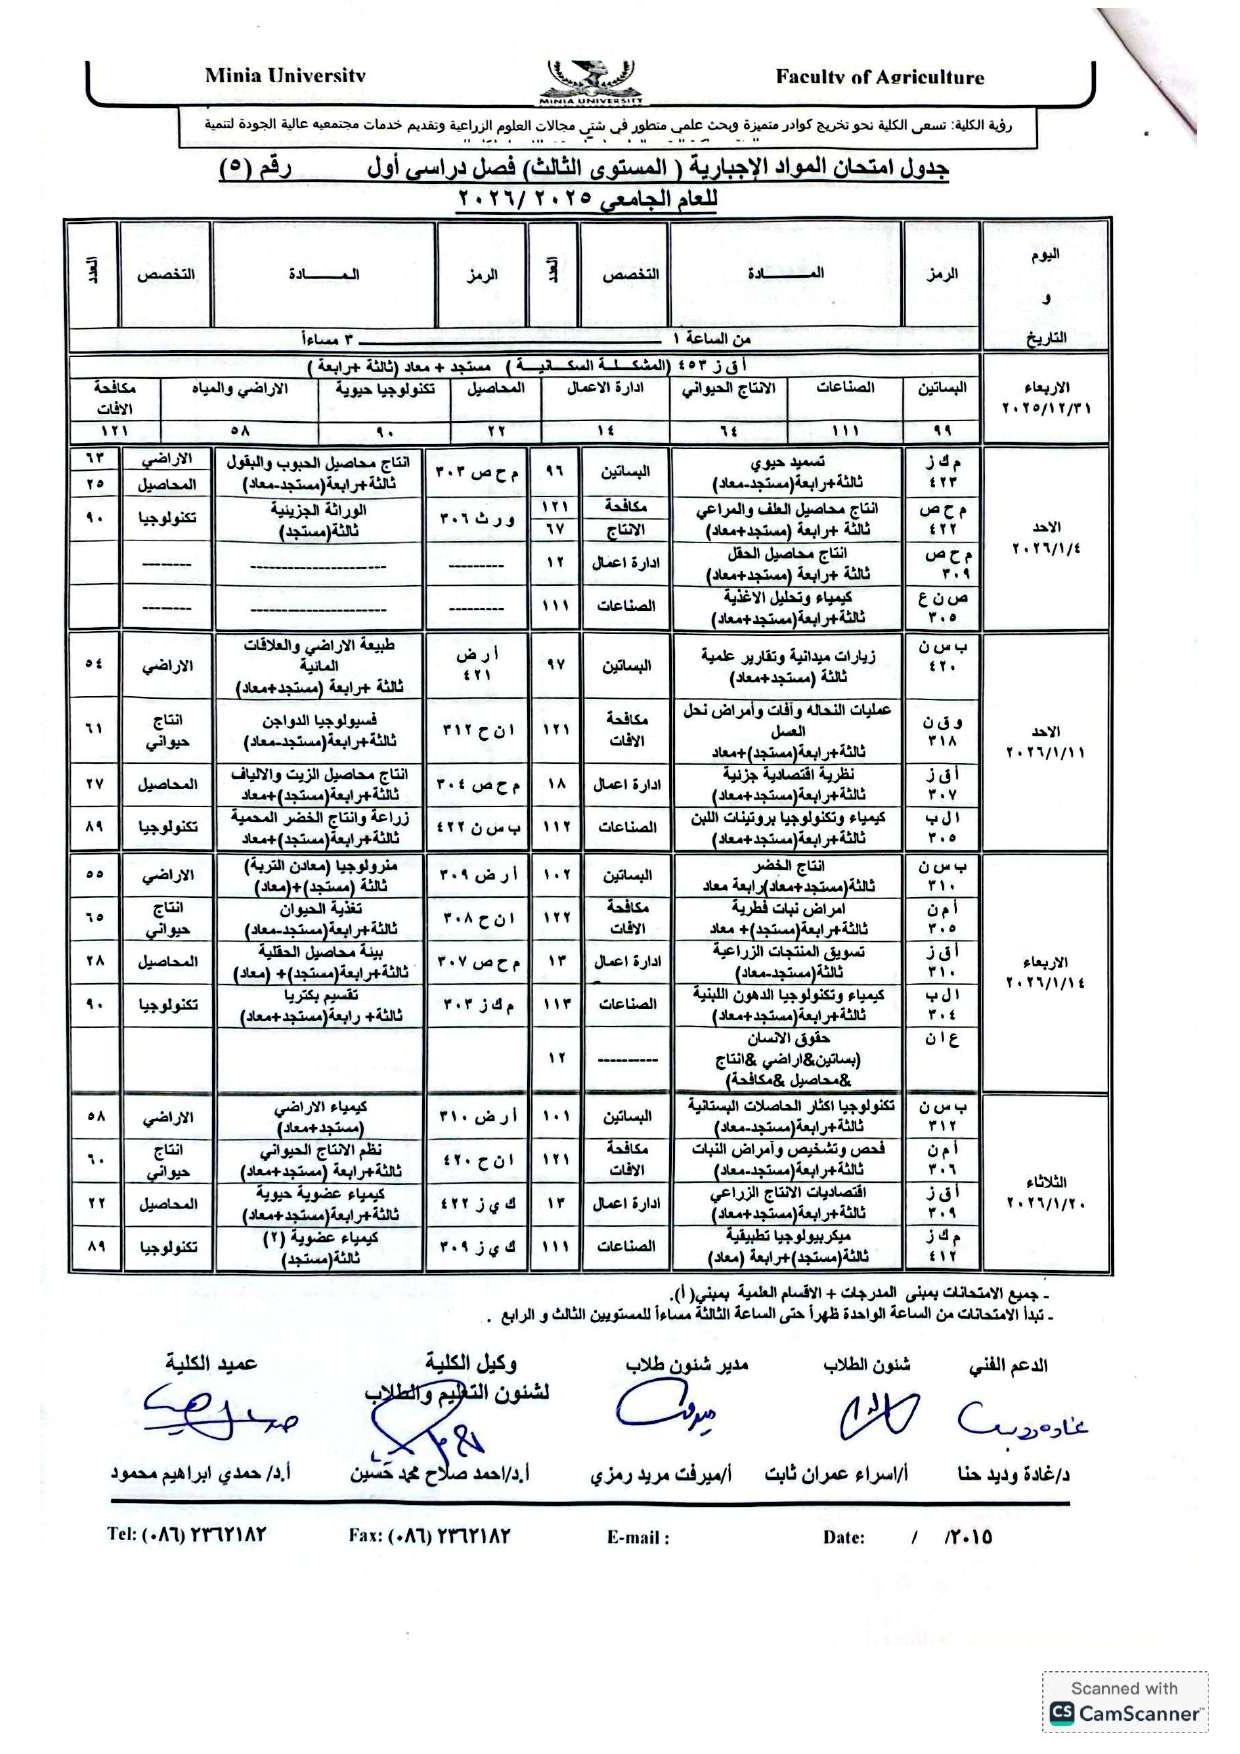 Minia University
Faculty of Agriculture
MINIA UNIVERSITY
رؤية الكلية: تسعى الكلية نحو تخريج كوادر متميزة وبحث علمى متطور فى شتى مجالات العلوم الزراعية وتقديم خدمات مجتمعيه عالية الجودة لتنمية
جدول امتحان المواد الإجبارية ( المستوى الثالث) فصل دراسي أول رقم (٥)
للعام الجامعي ٢٠٢٥ /٢٠٢٦
اليوم و التاريخ | الرمز | المـــــادة | التخصص | العدد | الرمز | المـــــادة | التخصص | العدد
من الساعة ١ ــــــــــ ٣ مساءاً
الاربعاء ٢٠٢٥/١٢/٣١
أ ق ز ٤٥٣ (المشكلـة السكـانيـــة ) مستجد + معاد (ثالثة +رابعة )
البساتين | الصناعات | الانتاج الحيواني | ادارة الاعمال | المحاصيل | تكنولوجيا حيوية | الاراضي والمياه | مكافحة الافات
٩٩ | ١١١ | ٦٤ | ١٤ | ٢٢ | ٩٠ | ٥٨ | ١٢١
الاحد ٢٠٢٦/١/٤
م ك ز ٤٢٣ | تسميد حيوي ثالثة+رابعة(مستجد-معاد) | البساتين | ٩٦ | م ح ص ٣٠٣ | انتاج محاصيل الحبوب والبقول ثالثة+رابعة(مستجد-معاد) | الاراضي | ٦٣
المحاصيل | ٢٥
م ح ص ٤٢٢ | انتاج محاصيل العلف والمراعي ثالثة +رابعة (مستجد+معاد) | مكافحة | ١٢١ | و ر ث ٣٠٦ | الوراثة الجزيئية ثالثة(مستجد) | تكنولوجيا | ٩٠
الانتاج | ٦٧
م ح ص ٣٠٩ | انتاج محاصيل الحقل ثالثة +رابعة (مستجد+معاد) | ادارة اعمال | ١٢ | --------- | ---------------------- | --------
ص ن ع ٣٠٥ | كيمياء وتحليل الاغذية ثالثة+رابعة(مستجد+معاد) | الصناعات | ١١١ | --------- | ---------------------- | --------
الاحد ٢٠٢٦/١/١١
ب س ن ٤٢٠ | زيارات ميدانية وتقارير علمية ثالثة (مستجد+معاد) | البساتين | ٩٧ | أ ر ض ٤٢١ | طبيعة الاراضي والعلاقات المائية ثالثة +رابعة (مستجد+معاد) | الاراضي | ٥٤
و ق ن ٣١٨ | عمليات النحاله وآفات وأمراض نحل العسل ثالثة+رابعة(مستجد)+معاد | مكافحة الافات | ١٢١ | ا ن ح ٣١٢ | فسيولوجيا الدواجن ثالثة+رابعة(مستجد-معاد) | انتاج حيواني | ٦١
أ ق ز ٣٠٧ | نظرية اقتصادية جزئية ثالثة+رابعة(مستجد+معاد) | ادارة اعمال | ١٨ | م ح ص ٣٠٤ | انتاج محاصيل الزيت والالياف ثالثة+رابعة(مستجد)+معاد | المحاصيل | ٢٧
ا ل ب ٣٠٥ | كيمياء وتكنولوجيا بروتينات اللبن ثالثة+رابعة(مستجد+معاد) | الصناعات | ١١٢ | ب س ن ٤٢٢ | زراعة وانتاج الخضر المحمية ثالثة+رابعة(مستجد)+معاد | تكنولوجيا | ٨٩
الاربعاء ٢٠٢٦/١/١٤
ب س ن ٣١٠ | انتاج الخضر ثالثة(مستجد+معاد)رابعة معاد | البساتين | ١٠٢ | أ ر ض ٣٠٩ | منرولوجيا (معادن التربة) ثالثة (مستجد)+(معاد) | الاراضي | ٥٥
أ م ن ٣٠٥ | امراض نبات فطرية ثالثة+رابعة(مستجد)+ معاد | مكافحة الافات | ١٢٢ | ا ن ح ٣٠٨ | تغذية الحيوان ثالثة+رابعة(مستجد-معاد) | انتاج حيواني | ٦٥
أ ق ز ٣١٠ | تسويق المنتجات الزراعية ثالثة(مستجد-معاد) | ادارة اعمال | ١٣ | م ح ص ٣٠٧ | بيئة محاصيل الحقلية ثالثة+رابعة(مستجد)+ (معاد) | المحاصيل | ٢٨
ا ل ب ٣٠٤ | كيمياء وتكنولوجيا الدهون اللبنية ثالثة+رابعة(مستجد+معاد) | الصناعات | ١١٣ | م ك ز ٣٠٣ | تقسيم بكتريا ثالثة+ رابعة(مستجد+معاد) | تكنولوجيا | ٩٠
ع ا ن | حقوق الانسان (بساتين&اراضي &انتاج &محاصيل &مكافحة) | ---------- | ١٢
الثلاثاء ٢٠٢٦/١/٢٠
ب س ن ٣١٢ | تكنولوجيا اكثار الحاصلات البستانية ثالثة+رابعة(مستجد-معاد) | البساتين | ١٠١ | أ ر ض ٣١٠ | كيمياء الاراضي (مستجد+معاد) | الاراضي | ٥٨
أ م ن ٣٠٦ | فحص وتشخيص وأمراض النبات ثالثة+رابعة(مستجد-معاد) | مكافحة الافات | ١٢١ | ا ن ح ٤٢٠ | نظم الانتاج الحيواني ثالثة+رابعة (مستجد+معاد) | انتاج حيواني | ٦٠
أ ق ز ٣٠٩ | اقتصاديات الانتاج الزراعي ثالثة+رابعة(مستجد+معاد) | ادارة اعمال | ١٣ | ك ي ز ٤٢٢ | كيمياء عضوية حيوية ثالثة+رابعة(مستجد+معاد) | المحاصيل | ٢٢
م ك ز ٤١٢ | ميكربيولوجيا تطبيقية ثالثة(مستجد)+رابعة (معاد) | الصناعات | ١١١ | ك ي ز ٣٠٩ | كيمياء عضوية (٢) ثالثة(مستجد) | تكنولوجيا | ٨٩
- جميع الامتحانات بمبنى المدرجات + الاقسام العلمية بمبني( أ).
- تبدأ الامتحانات من الساعة الواحدة ظهراً حتى الساعة الثالثة مساءاً للمستويين الثالث و الرابع .
الدعم الفني | شئون الطلاب | مدير شئون طلاب | وكيل الكلية | عميد الكلية
لشئون التعليم والطلاب
د/غادة وديد حنا | أ/اسراء عمران ثابت | أ/ميرفت مريد رمزي | أ.د/احمد صلاح محمد حسين | أ.د/ حمدي ابراهيم محمود
Tel: (٠٨٦) ٢٣٦٢١٨٢ Fax: (٠٨٦) ٢٣٦٢١٨٢ E-mail : Date: / /٢٠١٥
Scanned with
CS CamScanner